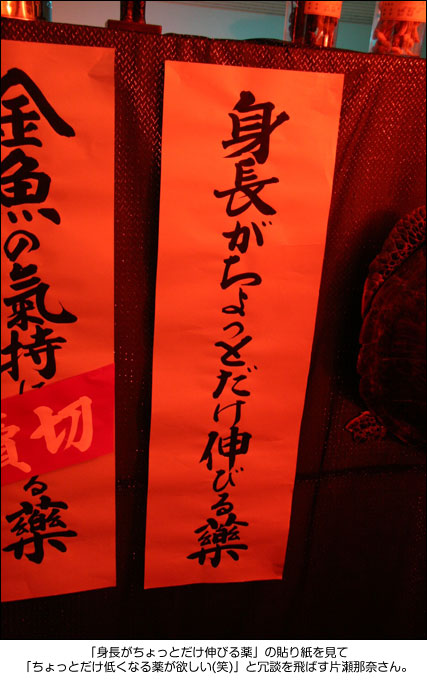 身長がちょっとだけ伸びる藥
金魚の氣持に
る藥
賣切
「身長がちょっとだけ伸びる薬」の貼り紙を見て
「ちょっとだけ低くなる薬が欲しい(笑)」と冗談を飛ばす片瀬那奈さん。